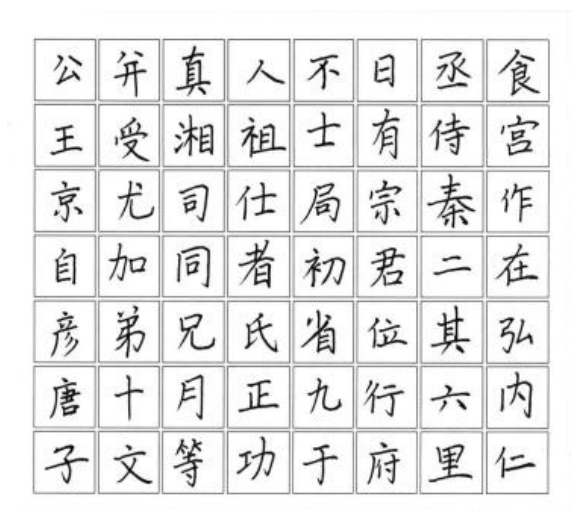 公并真人不日丞食
王受湘祖士有侍宫
京尤司仕局宗秦作
自加同者初君二在
彦弟兄氏省位其弘
唐十月正九行六内
子文等功于府里仁